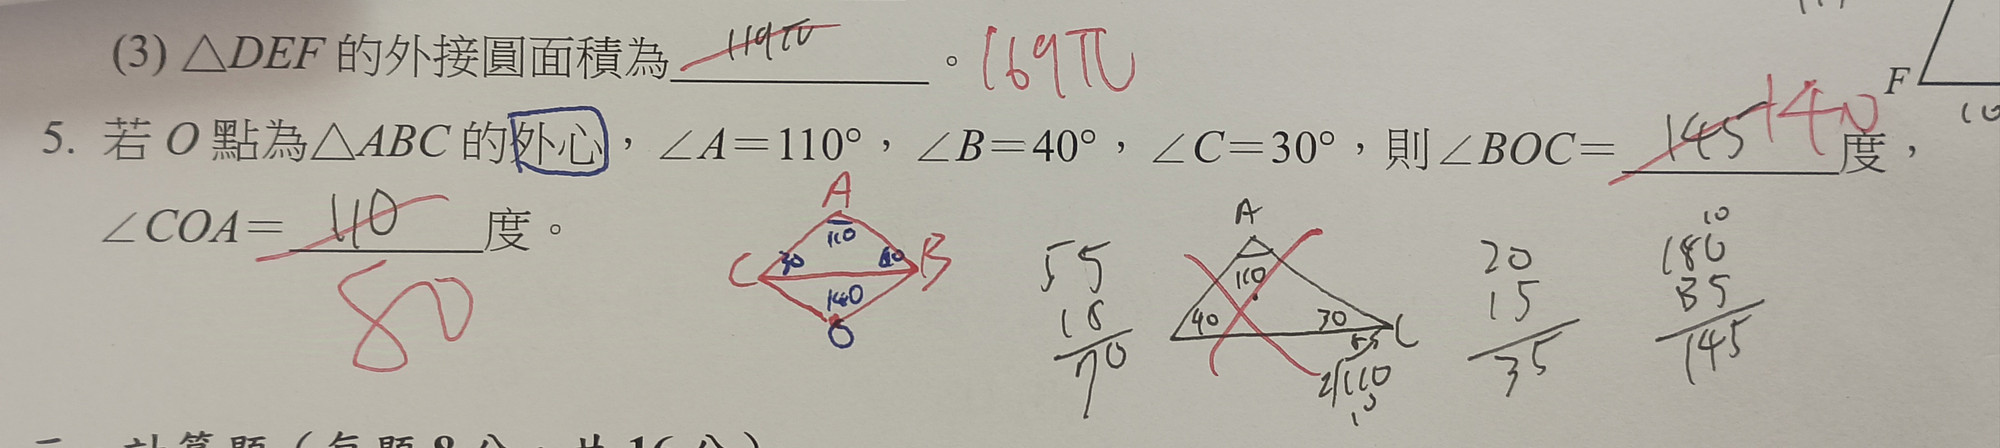 (3) △DEF 的外接圓面積為 119π 。169π
F
10
5. 若 O 點為△ABC 的外心,∠A=110°,∠B=40°,∠C=30°,則∠BOC= 145 140 度,
∠COA= 110 度。
80
A
110
30
C
B
140
O
55
15
70
A
110
40
30
55
C
2 110
10
20
15
35
10
180
35
145
二、計算題(每題 8 分,共 16 分)